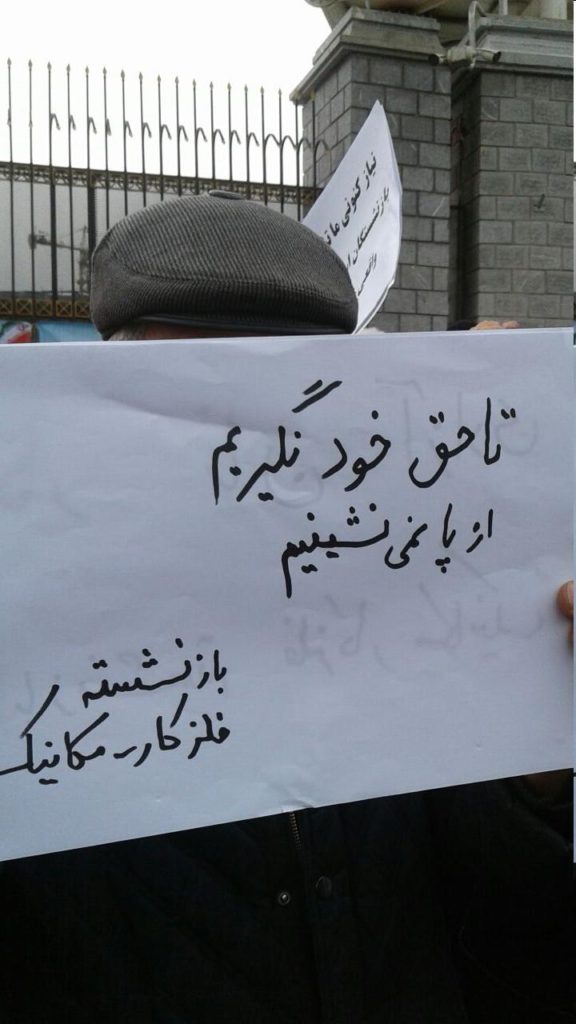 نیاز کنونی ما
بازنشستگان
تا حق خود نگیریم
از پا نمی نشینیم
بازنشسته
فلزکار - مکانیک